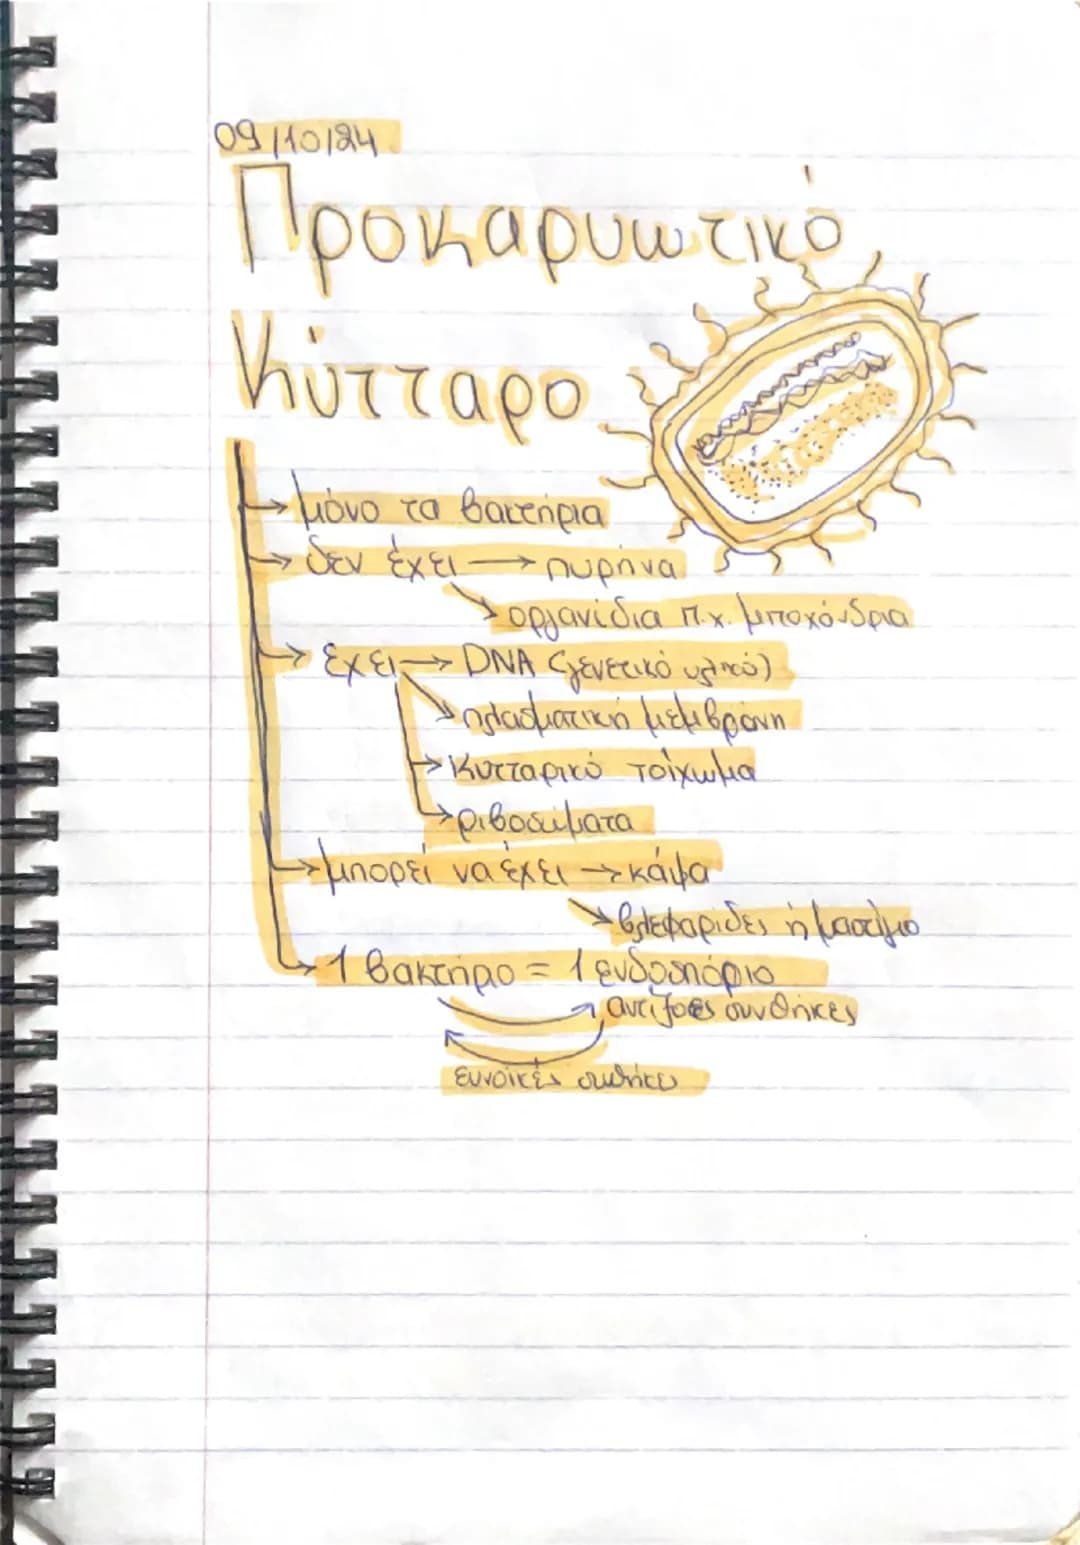 09/10/24
Προκαρυωτικό
Κύτταρο
→ μόνο τα βακτήρια
→ δεν έχει → πυρήνα
→ οργανίδια π.χ. μιτοχόνδρια
→ έχει → DNA (γενετικό υλικό)
→ πλασματική μεμβράνη
→ κυτταρικό τοίχωμα
→ ριβοσώματα
→ μπορεί να έχει → κάψα
→ βλεφαρίδες ή μαστίγιο
→ 1 βακτήριο = 1 ενδοσπόριο
αντίξοες συνθήκες
ευνοϊκές συνθήκες